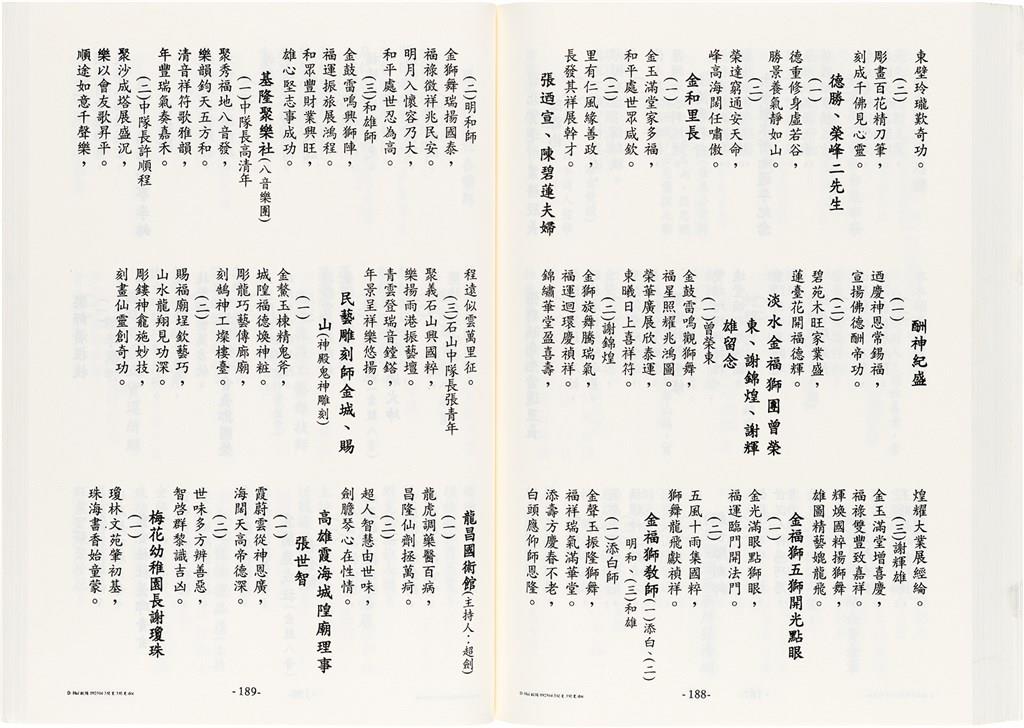 東壁玲瓏歎奇功。
(二)
彫畫百花精刀筆,
刻成千佛見心靈。
德勝、榮峰二先生
(一)
德重修身虛若谷,
勝景養氣靜如山。
(二)
榮達窮通安天命,
峰高海闊任嘯傲。
金和里長
(一)
金玉滿堂家多福,
和平處世眾咸欽。
(二)
里有仁風緣善政,
長發其祥展幹才。
張迺宣、陳碧蓮夫婦
酬神紀盛
(一)
迺慶神恩常錫福,
宣揚佛德酬帝功。
(二)
碧苑木旺家業盛,
蓮臺花開福德輝。
淡水金福獅團曾榮
東、謝錦煌、謝輝
雄留念
(一)曾榮東
金鼓雷鳴觀獅舞,
福星照耀兆鴻圖。
榮華廣展欣泰運,
東曦日上喜祥符。
(二)謝錦煌
金獅旋舞騰瑞氣,
福運迴環慶禎祥。
錦繡華堂盈喜壽,
煌耀大業展經綸。
(三)謝輝雄
金玉滿堂增喜慶,
福祿雙豐致嘉祥。
輝煥國粹揚獅舞,
雄圖精藝媲龍飛。
金福獅五獅開光點眼
(一)
金光滿眼點獅眼,
福運臨門開法門。
(二)
五風十雨集國粹,
獅舞龍飛獻禎祥。
金福獅教師(一)添白、(二)
明和、(三)和雄
(一)添白師
金聲玉振隆獅舞,
福祥瑞氣滿華堂。
添壽方慶春不老,
白頭應仰師恩隆。
-188-
(二)明和師
金獅舞瑞揚國泰,
福祿徵祥兆民安。
明月入懷容乃大,
和平處世忍為高。
(三)和雄師
金鼓雷鳴興獅陣,
福運振旅展鴻程。
和眾豐財業興旺,
雄心堅志事成功。
基隆聚樂社(八音樂團)
(一)中隊長高清年
聚秀福地八音發,
樂韻鈞天五方和。
清音祥符歌雅韻,
年豐瑞氣奏嘉禾。
(二)中隊長許順程
聚沙成塔展盛況,
樂以會友歌昇平。
順途如意千聲樂,
程遠似雲萬里征。
(三)石山中隊長張青年
聚義石山興國粹,
樂揚雨港振藝壇。
青雲登瑞音鏜鎝,
年景呈祥樂悠揚。
民藝雕刻師金城、賜
山(神殿鬼神雕刻)
(一)
金鰲玉棟精鬼斧,
城隍福德煥神粧。
彫龍巧藝傳廊廟,
刻鵠神工燦樓臺。
(二)
賜福廟埕欽藝巧,
山水龍翔見功深。
彫鏤神龕施妙技,
刻畫仙靈創奇功。
龍昌國術館(主持人:超劍)
(一)
龍虎調藥醫百病,
昌隆仙劑拯萬疴。
(二)
超人智慧由世味,
劍膽琴心在性情。
高雄霞海城隍廟理事
張世智
(一)
霞蔚雲從神恩廣,
海闊天高帝德深。
(二)
世味多方辨善惡,
智啓群黎識吉凶。
梅花幼稚園長謝瓊珠
(一)
瓊林文苑肇初基,
珠海書香始童蒙。
-189-